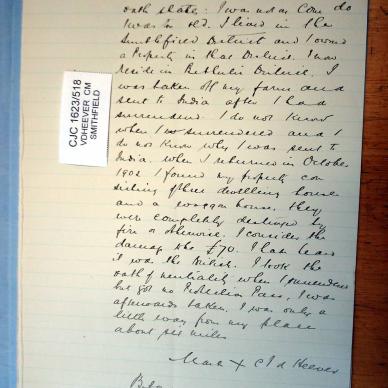 oath states: I was not on Com do
I was too old. I lived in the
Smithfield District and I owned
a property in that District. I now
reside in Bethulie District. I
was taken off my farm and
sent to India after I had
surrendered. I do not know
when I surrendered and I
do not know why I was sent to
India. When I returned in October
1902 I found my property con
sisting of three dwelling house
and a waggon house, they
were completely destroyed by
fire or otherwise. I consider the
damage was £70. I can hear
it was the British. I took the
oath of neutrality when I surrendered
but got no Protection Pass, I was
afterwards taken. I was only a
little way from my place
about six miles
Mark X C J d Heever
CJC 1623/518
VDHEEVER CM
SMITHFIELD